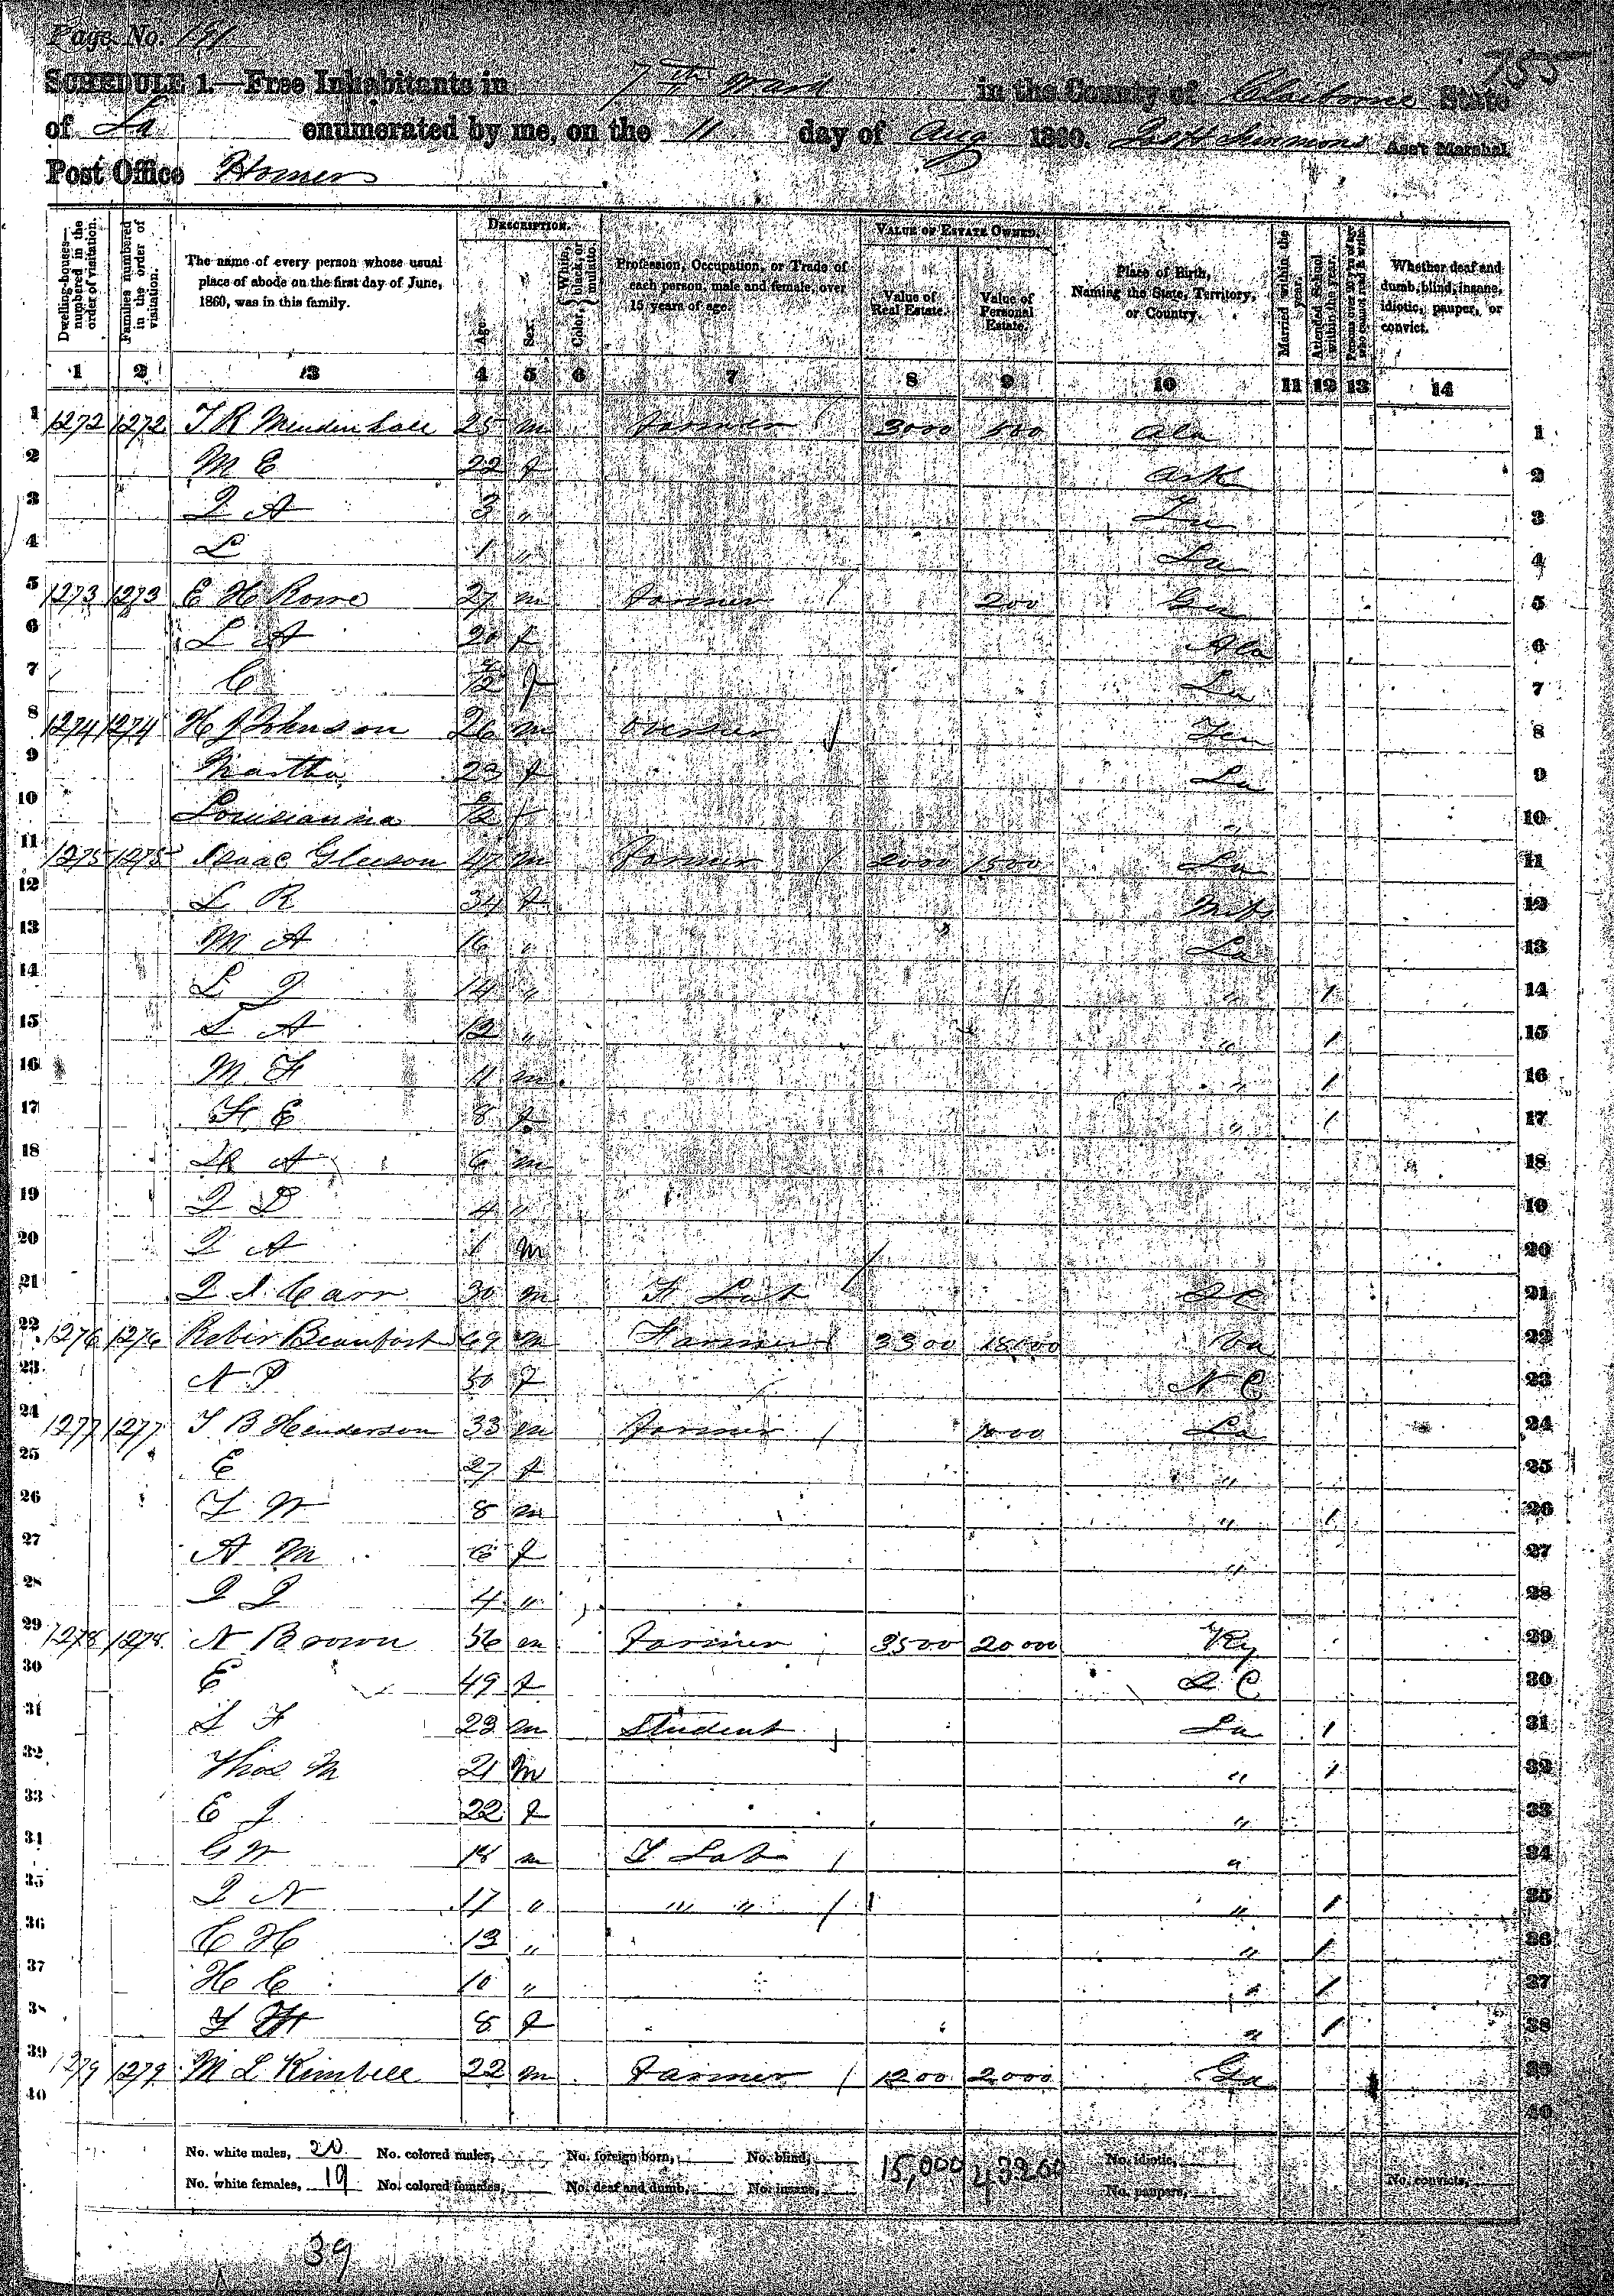 Page No. 191
755
SCHEDULE 1.—Free Inhabitants in 7th Ward in the County of Claiborne State
of La enumerated by me, on the 11 day of Aug 1860. Ass't Marshal.
Post Office Homer
Dwelling-houses—numbered in the order of visitation.
Families numbered in the order of visitation.
The name of every person whose usual place of abode on the first day of June, 1860, was in this family.
DESCRIPTION.
Age.
Sex.
Color, White, black, or mulatto.
Profession, Occupation, or Trade of each person, male and female, over 15 years of age.
VALUE OF ESTATE OWNED.
Value of Real Estate.
Value of Personal Estate.
Place of Birth, Naming the State, Territory, or Country.
Married within the year.
Attended School within the year.
Persons over 20 y'rs of age who cannot read & write.
Whether deaf and dumb, blind, insane, idiotic, pauper, or convict.
1 2 3 4 5 6 7 8 9 10 11 12 13 14
1 1272 1272 J R Mendenhall 25 m Farmer / 3000 500 Ala 1
2 M E 22 f Ark 2
3 J A 3 " La 3
4 L 1 " La 4
5 1273 1273 E H Rowe 27 m Farmer / 200 Ga 5
6 L A 20 f Ala 6
7 C /12 f La 7
8 1274 1274 H J Johnson 26 m Overseer / Ten 8
9 Martha 23 f La 9
10 Louisianna /12 f " 10
11 1275 1275 Isaac Gleeson 47 m Farmer / 2000 1500 La 11
12 L R 34 f Miss 12
13 M A 16 " La 13
14 L J 14 " " 1 14
15 S A 12 " " 1 15
16 M F 11 m " 1 16
17 H E 8 f " 1 17
18 A 6 m 18
19 J D 4 " 19
20 J A 1 m 20
21 J I Carr 30 m F Lab / S C 21
22 1276 1276 Beaufort 69 m Farmer / 3300 Va 22
23 N P 50 f N C 23
24 1277 1277 J B Henderson 33 m Farmer / 1000 La 24
25 E 27 f " 25
26 J W 8 m " 1 26
27 A M 6 f " 27
28 J J 4 " 28
29 1278 1278 N Brown 56 m Farmer / 3500 20000 Ky 29
30 E 49 f S C 30
31 S F 23 m Student / La 1 31
32 Thos M 21 m " 1 32
33 E J 22 f " 33
34 G W 18 m F Lab / " 34
35 J N 17 " " " / " 1 35
36 C H 13 " " 1 36
37 H C 10 " " 1 37
38 8 f " 1 38
39 1279 1279 M L Kimbell 22 m Farmer / 1200 2000 Ga 39
40 40
No. white males, 20 No. colored males, No. foreign born, No. blind, 15,000 43260 No. idiotic,
No. white females, 19 No. colored females, No. deaf and dumb, No. insane, No. paupers, No. convicts,
39